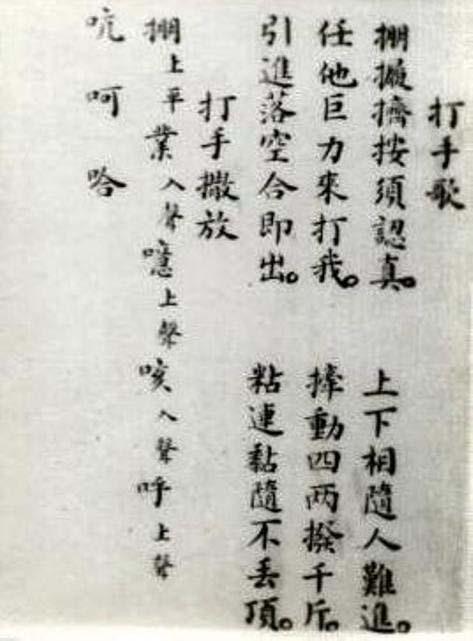 打手歌
掤擠按須認真。 上下相隨人難進。
任他巨力來打我。 動四兩撥千斤。
引進落空合即出。 粘連黏隨不丟頂。
打手撒放
掤上平 業入聲 噫上聲 咳入聲 呼上聲
吭 呵 哈